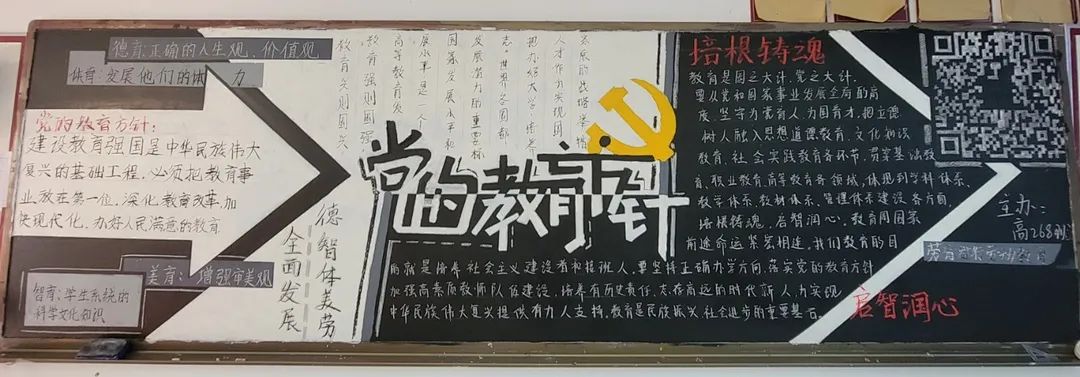 德育:正确的人生观、价值观
体育:发展他们的体 力
党的教育方针:
建设教育强国是中华民族伟大
复兴的基础工程,必须把教育事
业放在第一位,深化教育改革,加
快现代化,办好人民满意的教育
美育:增强审美观
智育:学生系统的
科学文化知识
德智体美劳
全面发展
教育兴则国兴
教育强则国强
高等教育发
展水平是一个
国家发展水平和
发展潜力的重要标
志。世界各国都
把办好大学
人才作为实现国
家发展的战略举措
党的教育方针
培根铸魂
教育是国之大计、党之大计。
要从党和国家事业发展全局的高
度,坚守为党育人、为国育才,把立德
树人融入思想道德教育、文化知识
教育、社会实践教育各环节,贯穿基础教
育、职业教育、高等教育各领域,体现到学科体系、
教学体系、教材体系、管理体系建设各方面,
培根铸魂、启智润心。教育同国家
前途命运紧紧相连。我们教育的目
的就是培养社会主义建设者和接班人,要坚持正确办学方向,落实党的教育方针
加强高素质教师队伍建设,培养有历史责任、志存高远的时代新人,为实现
中华民族伟大复兴提供有力人支持,教育是民族振兴社会进步的重要基石。
启智润心
主办:
高268班